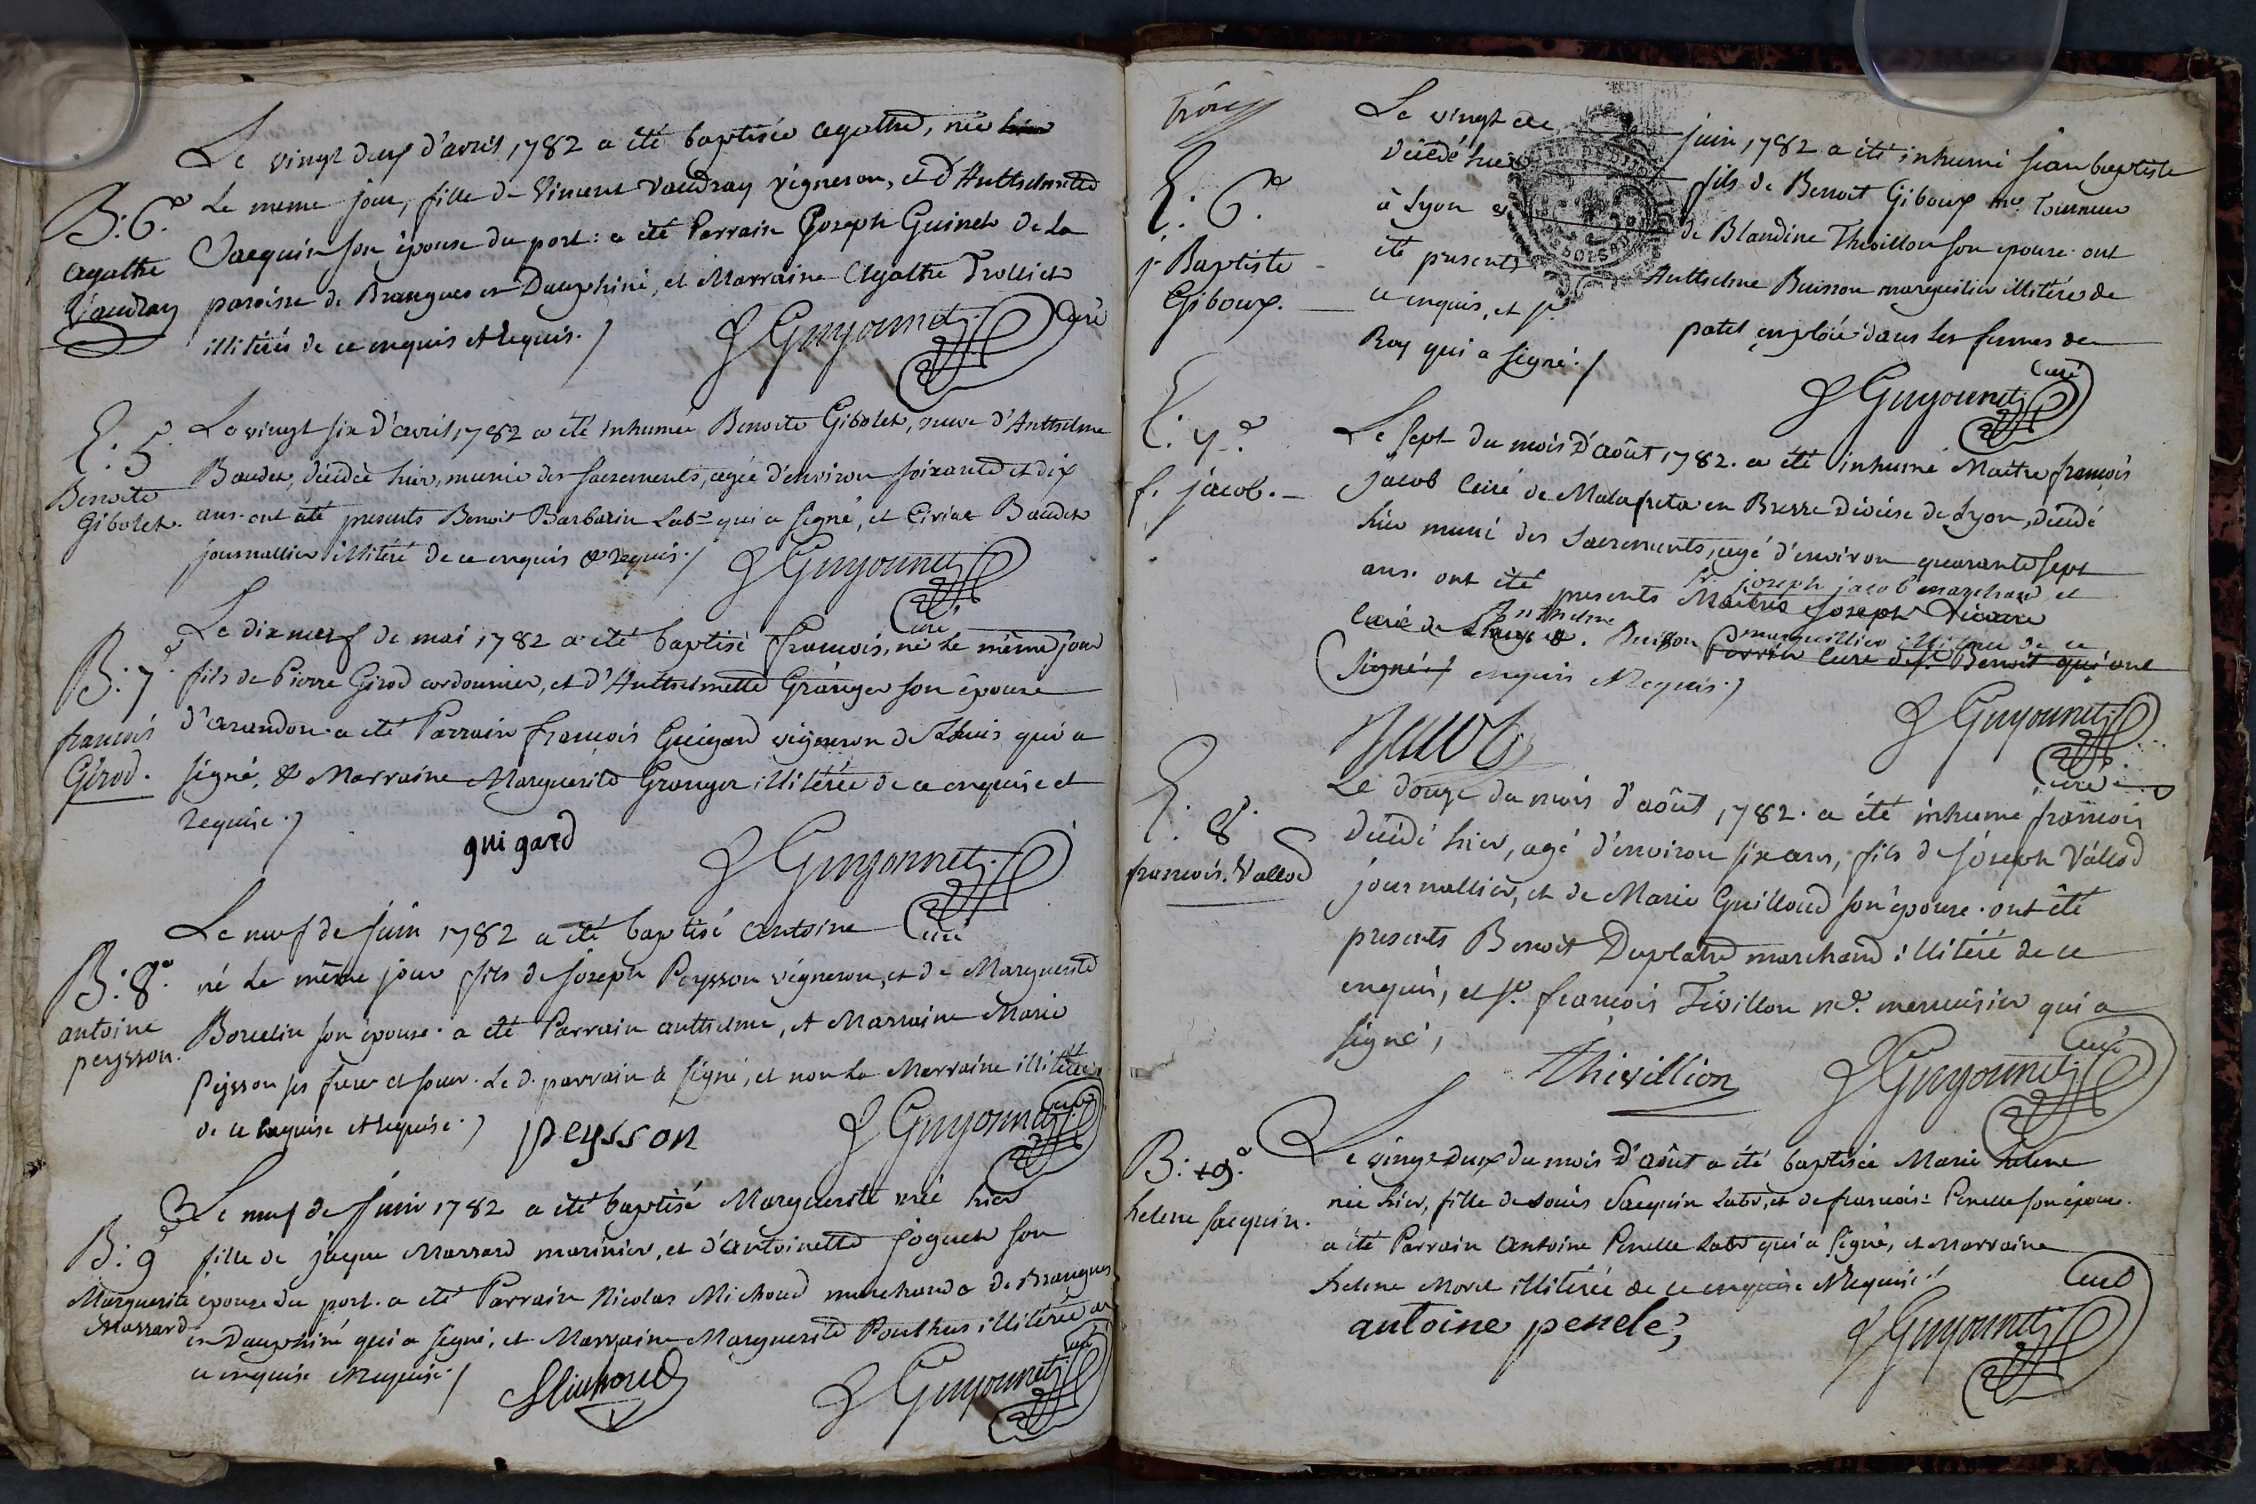 Le vingt deux d'avril 1782 a été baptisée agathe, née hier
B: 6e
agathe
Vaudray
Le meme jour, fille de Vincent Vaudray vigneron, et d'Anthelmette
Jacquin son épouse du port: a été Parrain Joseph Guinet de la
paroisse de Brangues en Dauphiné, et Marraine Agathe Trolliet
illitérés de ce enquis et requis./
J Guyonnet
Curé
E: 5
Benoite
Gibolet.
Le vingt six d'avril 1782 a été inhumée Benoite Gibolet, veuve d'Anthelme
Baudet, décédée hier, munie des sacrements, agée d'environ soixante et dix
ans. ont été presents Benoit Barbarin Labr qui a signé, et Baudet
journallier illitéré de ce enquis & requis./
J Guyonnet
Curé
B: 7e
francois
Girod.
Le dix neuf de mai 1782 a été baptisé francois, né le même jour
fils de Pierre Girod cordonnier, et d'Anthelmette Granger son épouse
d'arandon. a été Parrain francois Guigard vigneron de Lhuis qui a
signé, & Marraine Marguerite Granger illitérée de ce enquise et
requise./
guigard
J Guyonnet
Curé
B: 8e
antoine
peysson.
Le neuf de juin 1782 a été baptisé antoine
né le même jour fils de joseph Peysson vigneron, et de Marguerite
Borcelin son épouse. a été Parrain anthelme, et Marraine Marie
Peysson ses frere et soeur. Le d. parrain a signé, et non la Marraine illitérée
de ce enquise et requise./
peysson
J Guyonnet
Curé
B: 9e
Marguerite
Massard
Le neuf de juin 1782 a été baptisé Marguerite née hier
fille de jaque Massard marinier, et d'antoinette joguet son
épouse du port. a été Parrain Nicolas Michoud marchand de Brangues
en Dauphiné qui a signé, et Marraine Marguerite Ponthus illitérée de
ce enquise et requise./
J Guyonnet
Curé
E: 6e
j. Baptiste
Giboux.
Le vingt de juin 1782 a été inhumé jean baptiste
décédé hier fils de Benoit Giboux me. Tourneur
à Lyon & de Blandine Thivillon son épouse. ont
été presents Anthelme Buisson marguilier illitéré de
ce enquis, et sr. patel emploié dans les fermes de
Roy qui a signé./
J Guyonnet
Curé
E: 7e
f. jacob.
Le sept du mois d'août 1782. a été inhumé Maitre francois
jacob Curé de Malafreta en Bresse Diocèse de Lyon, décédé
hier muni des Sacrements, agé d'environ quarante sept
ans. ont été presents Maitres joseph Vicaire
sr. joseph jacob marchand et
anthelme Buisson marguillier illitéré de ce
Perrin Curé de st Benoit qui ont
signé./ enquis et requis./
Jacob
J Guyonnet
Curé
E: 8e
francois. Vallod
Le douze du mois d'août 1782. a été inhumé francois
décédé hier, agé d'environ six ans, fils de joseph Vallod
journallier, et de Marie Guilloud son épouse. ont été
presents Benoit Duplatre marchand illitéré de ce
enquis, et sr. francois Tivillon me. menuisier qui a
signé,
thivillion
J Guyonnet
Curé
B: 10e
helene jacquin.
Le vingt deux du mois d'août a été baptisée Marie helene
née hier, fille de Louis Jacquin Labr, et de francoise Penelle son épouse.
a été Parrain Antoine Penelle Labr qui a signé, et Marraine
helene Morel illitérée de ce enquise et requise./
antoine penele
J Guyonnet
Curé